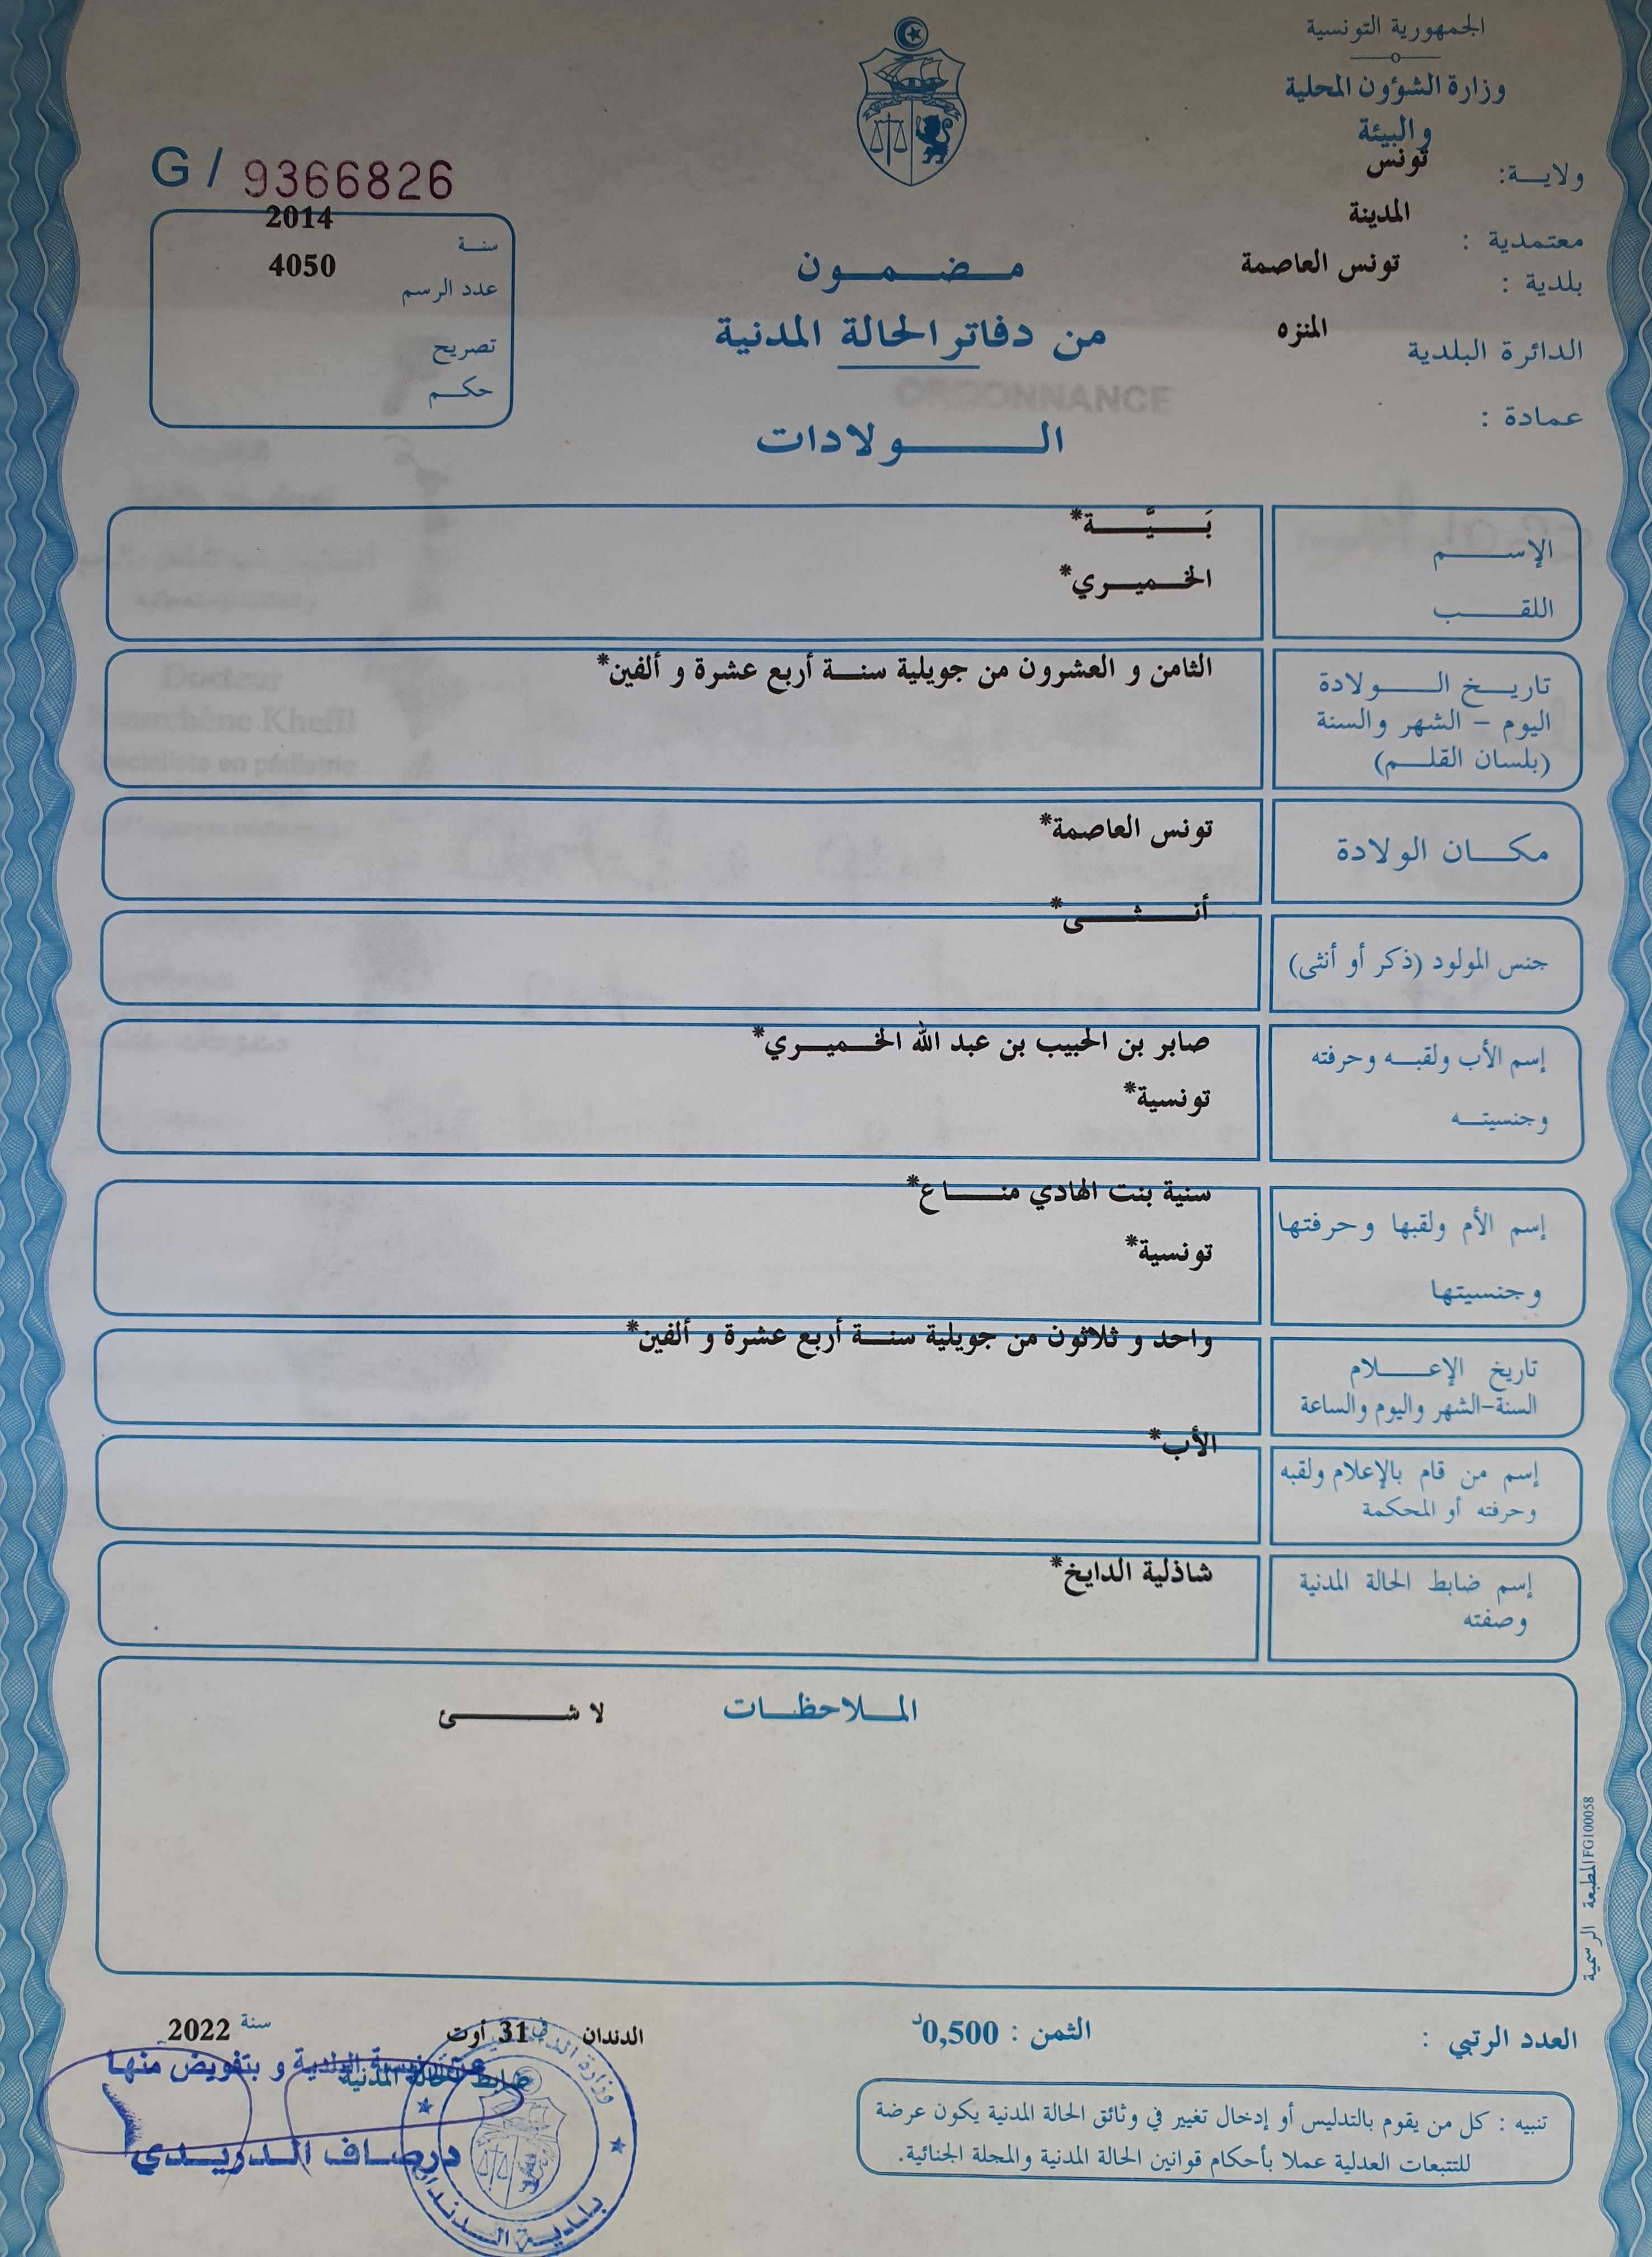 الجمهورية التونسية
وزارة الشؤون المحلية
والبيئة
ولاية: تونس
معتمدية : المدينة
بلدية : تونس العاصمة
الدائرة البلدية المنزه
عمادة :
G / 9366826
سنة 2014
عدد الرسم 4050
تصريح
حكم
مضمون
من دفاتر الحالة المدنية
الولادات
الإسم بَيَّة*
اللقب الخميري*
تاريخ الولادة
اليوم - الشهر والسنة
(بلسان القلم)
الثامن و العشرون من جويلية سنة أربع عشرة و ألفين*
مكان الولادة تونس العاصمة*
جنس المولود (ذكر أو أنثى) أنثى*
إسم الأب ولقبه وحرفته
وجنسيته
صابر بن الحبيب بن عبد الله الخميري*
تونسية*
إسم الأم ولقبها وحرفتها
وجنسيتها
سنية بنت الهادي مناع*
تونسية*
تاريخ الإعلام
السنة-الشهر واليوم والساعة
واحد و ثلاثون من جويلية سنة أربع عشرة و ألفين*
إسم من قام بالإعلام ولقبه
وحرفته أو المحكمة
الأب*
إسم ضابط الحالة المدنية
وصفته
شاذلية الدايخ*
الملاحظات لا شئ
المطبعة الرسمية FG100058
العدد الرتبي :
الثمن : 0,500د
الدندان في 31 أوت سنة 2022
ضابط الحالة المدنية
عن رئيسة البلدية و بتفويض منها
درصاف الدويدي
بلدية الدندان
تنبيه : كل من يقوم بالتدليس أو إدخال تغيير في وثائق الحالة المدنية يكون عرضة
للتتبعات العدلية عملا بأحكام قوانين الحالة المدنية والمجلة الجنائية.
ORDONNANCE
Docteur
Spécialiste en pédiatrie